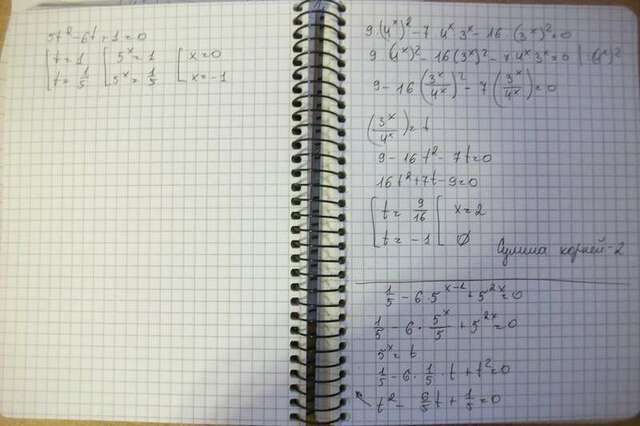 5t² - 6t + 1 = 0
[ t = 1 [ 5ˣ = 1 [ x = 0
[ t = 1/5 [ 5ˣ = 1/5 [ x = -1
9·(4ˣ)² - 7·4ˣ·3ˣ - 16·(3ˣ)² = 0
9·(4ˣ)² - 16(3ˣ)² - 7·4ˣ3ˣ = 0 | :(4ˣ)²
9 - 16(3ˣ/4ˣ)² - 7(3ˣ/4ˣ) = 0
(3ˣ/4ˣ) = t
9 - 16t² - 7t = 0
16t² + 7t - 9 = 0
[ t = 9/16 [ x = 2
[ t = -1 [ ∅ Сумма корней - 2
1/5 - 6·5ˣ⁻¹ + 5²ˣ = 0
1/5 - 6·5ˣ/5 + 5²ˣ = 0
5ˣ = t
1/5 - 6·1/5·t + t² = 0
t² - 6/5t + 1/5 = 0